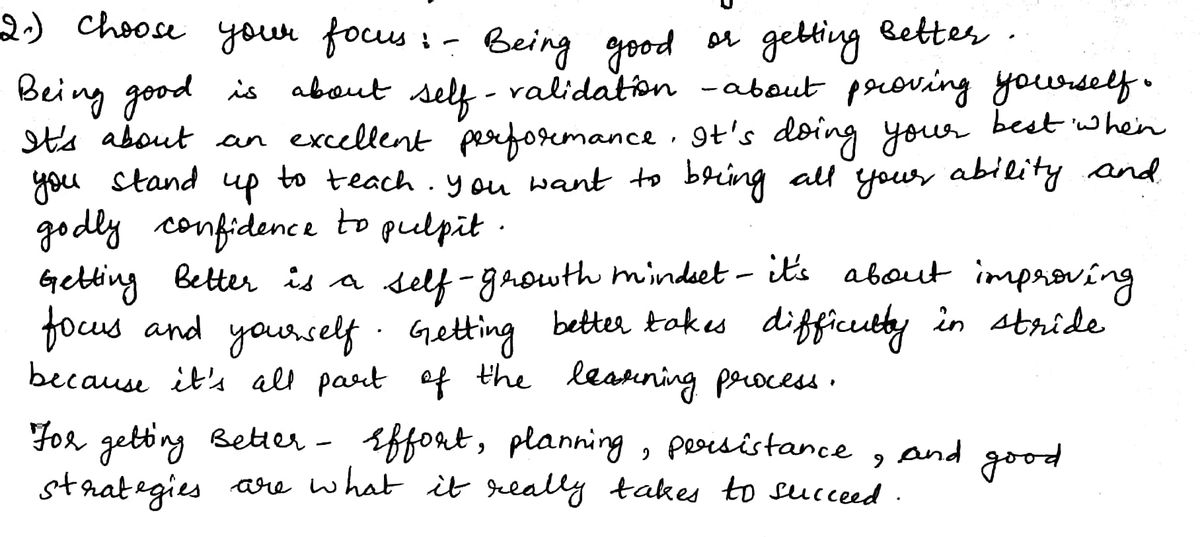 2.) Choose your focus :- Being good or getting Better.
Being good is about self-validation - about proving yourself.
It's about an excellent performance. It's doing your best when
you stand up to teach. You want to bring all your ability and
godly confidence to pulpit.
Getting Better is a self-growth mindset - it's about improving
focus and yourself. Getting better takes difficulty in stride
because it's all part of the learning process.
For getting Better - Effort, planning, persistance, and good
strategies are what it really takes to succeed.